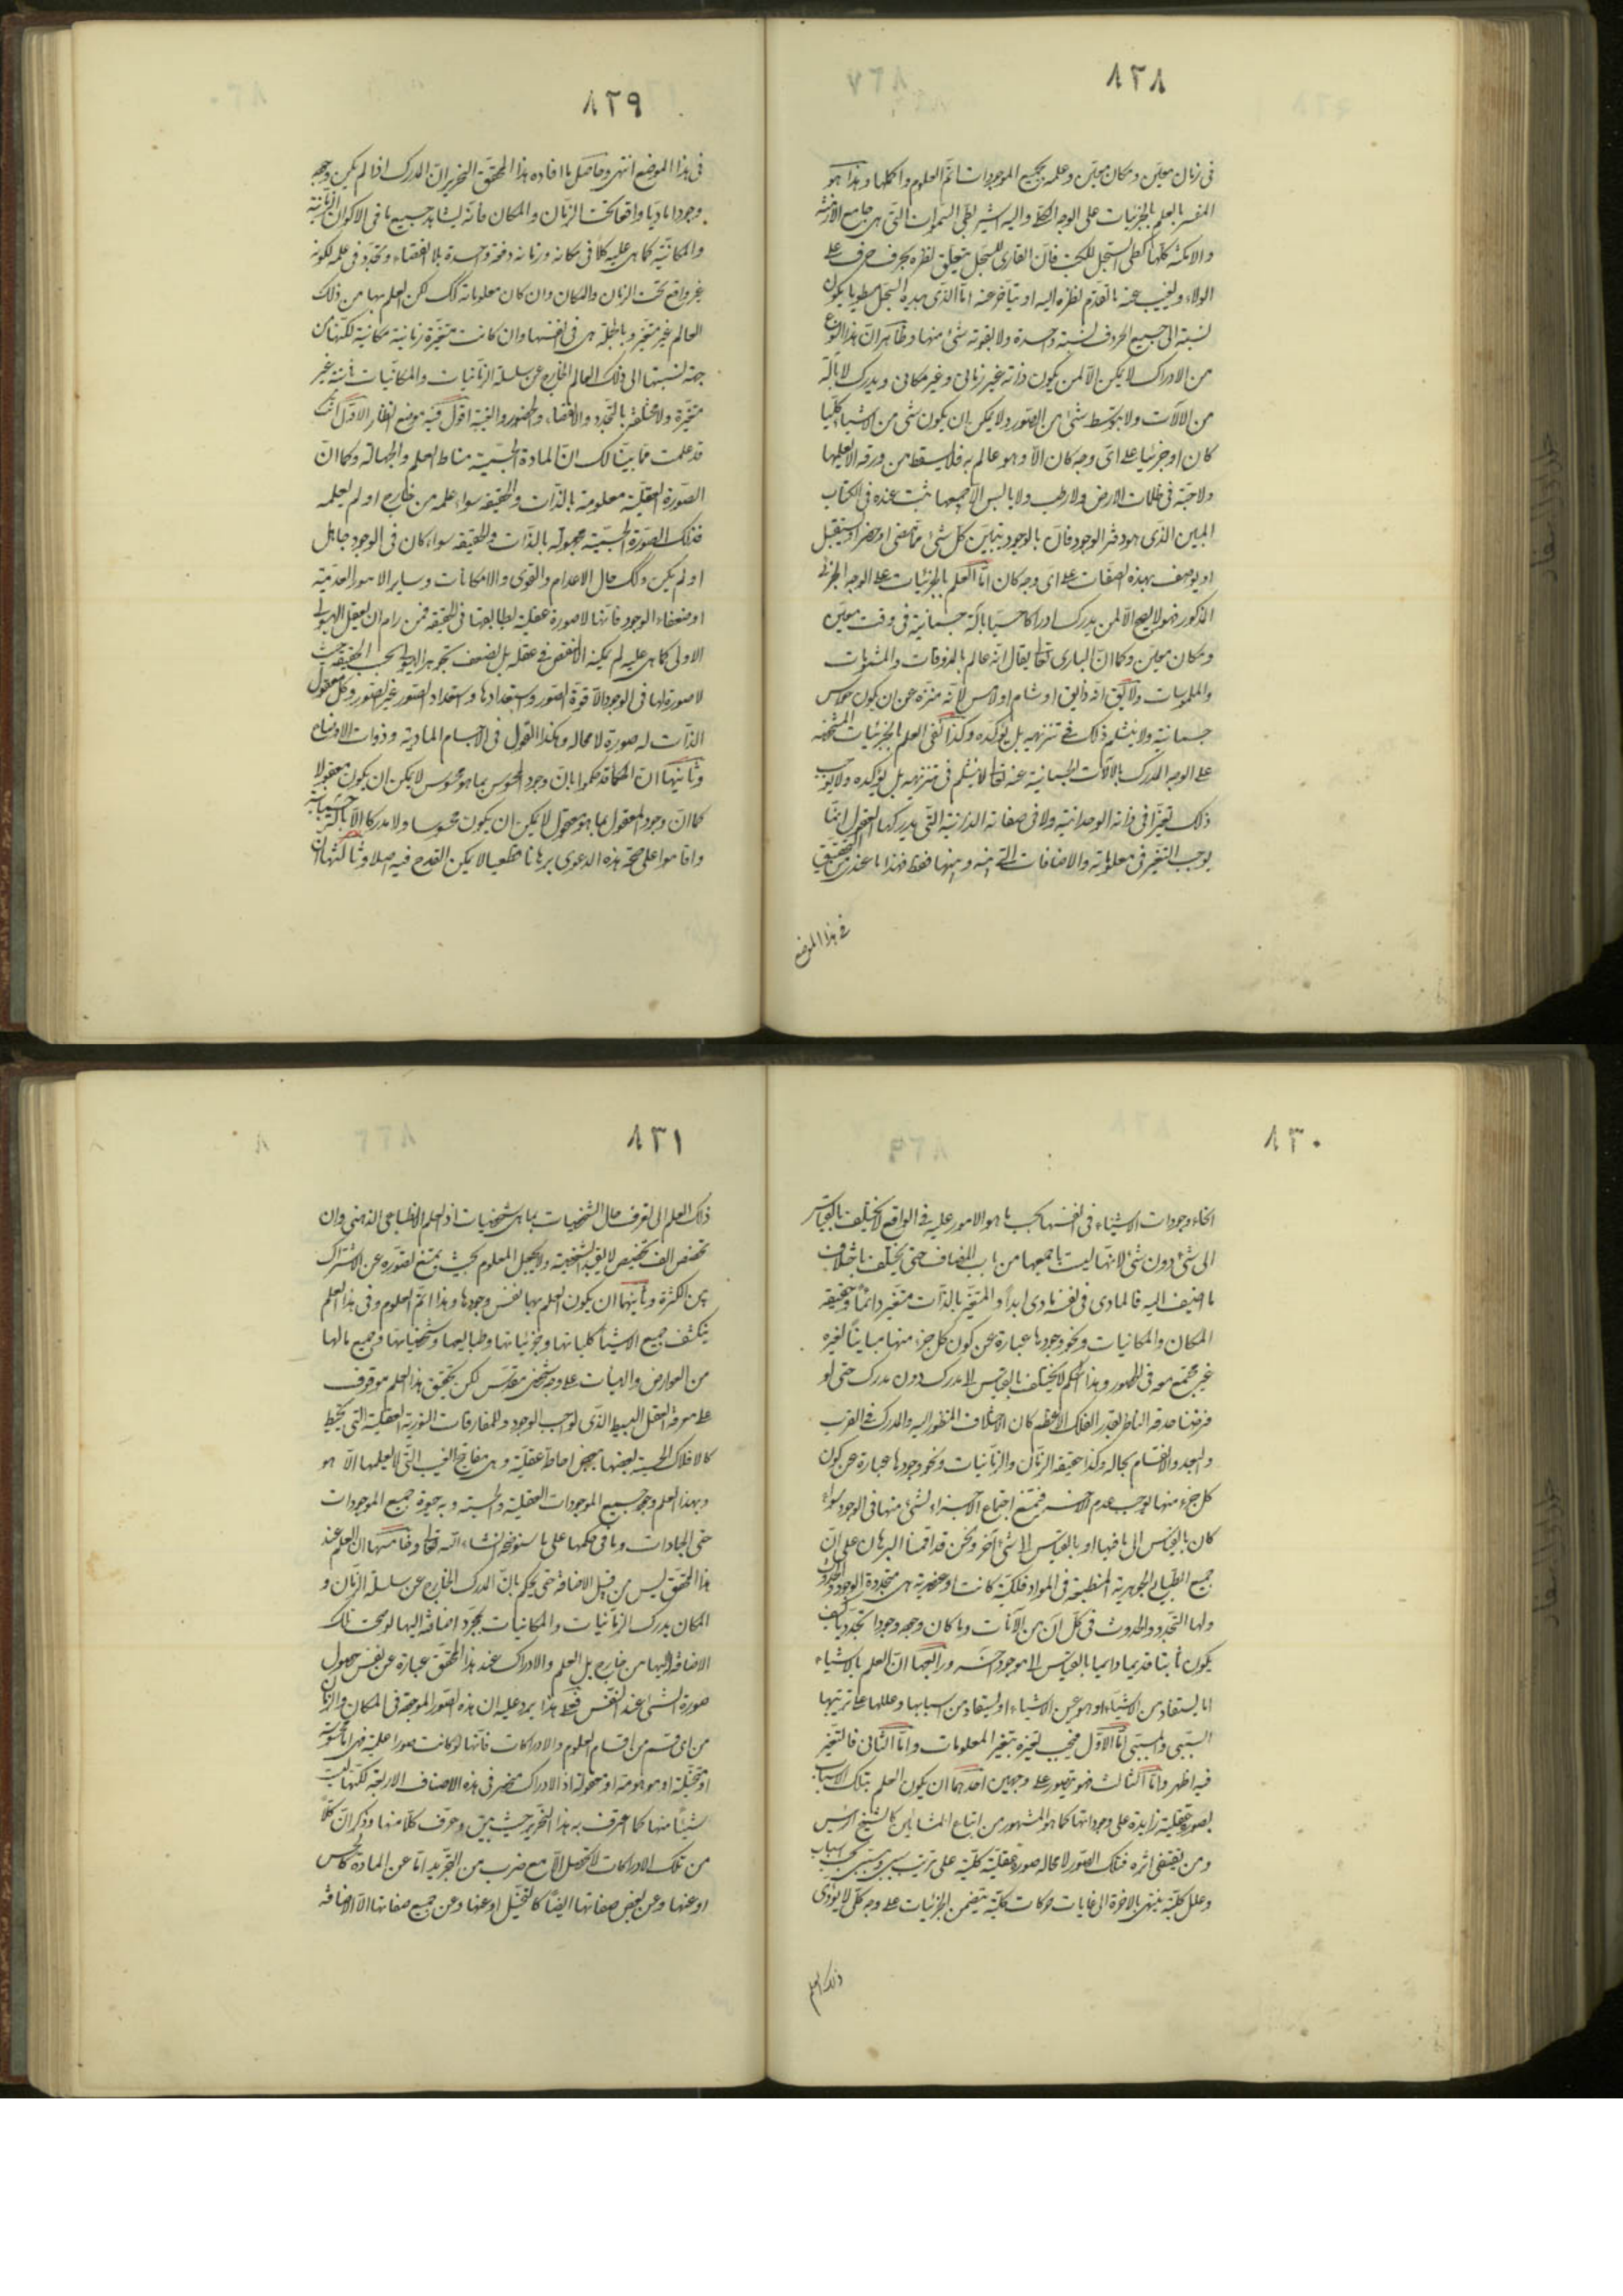 ٨٢٨
فى زمان معيّن ومكان معيّن وعلمه بجميع الموجودات اتمّ العلوم واكملها وهذا هو
المفسر بالعلم بالجزئيات على الوجه الكلّى واليه اشير بطىّ السموات التى هى جامع الازمنة
والامكنة كلها كطىّ السجل للكتب فانّ القارى للسجل يتعلق نظره بحرف حرف على
الولاء ويغيب عنه ما تقدّم نظره اليه او يتأخر عنه امّا الذى بيده السجل مطويا يكون
نسبته الى جميع الحروف نسبة واحدة ولا يفوته شئ منها وظاهر انّ هذا النوع
من الادراك لا يمكن الّا لمن يكون ذاته غير زمانى وغير مكانى ويدرك لا بآلة
من الالات ولا بتوسّط شئ من الصّور ولا يمكن ان يكون شئ من الاشياء كليّا
كان او جزئيا على اىّ وجه كان الّا وهو عالم به فلا يسقط من ورقة الا يعلمها
ولا حبّة فى ظلمات الارض ولا رطب ولا يابس الّا جميعها يثبت عنده فى الكتاب
المبين الذى هو دفتر الوجود فانّ بالوجود يتبيّن كلّ شئ ممّا مضى او حضر او يستقبل
او يوصف بهذه الصفات على اىّ وجه كان امّا العلم بالجزئيات على الوجه الجزئى
المذكور فهو لا يصح الّا لمن يدرك ادراكا حسيّا بآلة جسمانية فى وقت معيّن
ومكان معيّن وكما انّ البارى تعالى يقال انّه عالم بالمذوقات والمشمومات
والملموسات ولا يق انه ذايق او شام او لامس لانّه منزّه عن ان يكون حواس
جسمانية ولا ينثلم ذلك فى تنزيهه بل يؤكّده وكذا نفى العلم بالجزئيات المتشخصة
على الوجه المدرك بالآلات الجسمانية عنه تعالى لا يثلم فى تنزيهه بل يؤكده ولا يوجب
ذلك تغيّرا فى ذاته الوحدانية ولا فى صفاته الذاتية التى يدركها العقول انما
يوجب التغيّر فى معلوماته والاضافات التى بينه وبينها فقط فهذا ما عندى من التحقيق
فى هذا الموضع
٨٢٩
فى هذا الموضع انتهى وحاصل ما افاده هذا المحقق النحرير انّ المدرك اذا لم يكن وجه
وجودا ماديّا واقعا تحت الزمان والمكان فانّه يشاهد جميع ما فى الاكوان الزمانية
والمكانيّة كما هى عليه كلّا فى مكانه وزمانه دفعة واحدة بلا انقضاء وتجدّد فى علمه لكونه
غير واقع تحت الزمان والمكان وان كان معلوماته كك لكن العلم بها من ذلك
العالم غير متغيّر وبالجملة هى فى انفسها وان كانت متغيّرة زمانية مكانية لكنّها من
جهة نسبتها الى ذلك العالم الخارج عن سلسلة الزمانيات والمكانيات ثابتة غير
متغيّرة ولا مختلفة بالتجدد والانقضاء والحضور والغيبة اقول فيه موضع انظار الاوّل انّك
قد علمت ممّا بيّنا لك انّ المادة الجسميّة مناط العدم والجهالة وكما انّ
الصّورة العقليّة معلومة بالذّات والحقيقة سواء علمه من خارج او لم يعلمه
فتلك الصّورة الجسميّة مجهولة بالذّات والحقيقة سواء كان فى الوجود جاهل
او لم يكن وكك حال الاعدام والقوى والامكانات وساير الامور العدميّة
او ضعفاء الوجود فانّها لا صورة عقلية لطبايعها فى الحقيقة فمن رام ان يعقل الهيولى
الاولى كما هى عليه لم يمكنه لا لنقص فى عقله بل لضعف تجوهر الهيولى بحسب الحقيقة حيث
لا صورة لها فى الوجود الّا قوّة الصّور واستعدادها واستعداد الصّور غير الصّور وكل معقول
الذّات له صورة لا محالة وهكذا القول فى الاجسام الماديّة وذوات الاوضاع
وثانيها انّ الحكماء قد حكموا بانّ وجود المحسوس بما هو محسوس لا يمكن ان يكون معقولا
كما انّ وجود المعقول بما هو معقول لا يمكن ان يكون محسوسا ولا مدركا الّا بآلة جسمانية
واقاموا على صحّة هذه الدعوى برهانا قطعيا لا يمكن القدح فيه اصلا وثالثها ان
٨٣٠
انحاء وجودات الاشياء فى انفسها بحسب ما هو الامور عليه فى الواقع لا يختلف بالقياس
الى شئ دون شئ لانّها ليست باجمعها من باب المضاف حتى يختلف باختلاف
ما اضيف اليه فالمادى فى نفسه مادى ابدا والمتغيّر بالذّات متغيّر دائما وحقيقة
المكان والمكانيات ونحو وجودها عبارة عن كون كل جزء منها مباينا لغيره
غير مجتمع معه فى الحضور وهذا الحكم لا يختلف بالقياس الى مدرك دون مدرك حتى لو
فرضنا حدقة الناظر بقدر الفلك الاعظم كان الاختلاف المنظور اليه والمدرك فى القرب
والبعد والانقسام بحاله وكذا حقيقة الزّمان والزّمانيات ونحو وجودها عبارة عن كون
كل جزء منها يوجب عدم الآخر فيمتنع اجتماع الاجزاء لشئ منها فى الوجود سواء
كان بالقياس الى ما فيها او بالقياس الى شئ آخر ونحن قد اقمنا البرهان على انّ
جميع الطبايع الجوهرية المنطبعة فى المواد فلكيّة كانت او عنصرية هى متجددة الوجود والحدوث
ولها التّجدد والحدوث فى كلّ آن من الآنات وما كان وجهه وجودا تجدّديا كيف
يكون ثابتا قديما دايما بالقياس الى موجود آخر ورابعها انّ العلم بالاشياء
اما يستفاد من الاشياء او هو عين الاشياء او يستفاد من اسبابها وعللها على ترتيبها
السّببى والمسبّبى امّا الاوّل فيجب تغيّره بتغير المعلومات وامّا الثانى فالتغيّر
فيه اظهر وامّا الثالث فهو يتصور على وجهين احدهما ان يكون العلم بتلك الاسباب
بصورة عقلية زايدة على وجوداتها كما هو المشهور من اتباع المشائين كالشيخ الرئيس
ومن يقتفى اثره فتلك الصّور لا محاله صورة عقليّة كليّة على ترتيب سببى ومسبّبى بحسب اسباب
وعلل كليّة ينتهى بالاخرة الى غايات حركات كليّة يتضمن الجزئيات على وجه كلّى لا يؤدّى
ذلك العلم
٨٣١
ذلك العلم الى تعرف حال الشخصيات بما هى شخصيات اذ العلم الانطباعى الذهنى وان
تخصّص الف تخصيص لا يفيد الشخصية ولا يجعل المعلوم بحيث يمتنع تصوّره عن الاشتراك
بين الكثرة وثانيها ان يكون العلم بها بنفس وجودها وهذا اتمّ العلوم وفى هذا العلم
ينكشف جميع الاشياء كلياتها وجزئياتها وطبايعها وشخصياتها وجميع مالها
من العوارض والهيات على وجه شخصى مقدّس لكن تحقيق هذا العلم موقوف
على معرفة العقل البسيط الذى لواجب الوجود وللمفارقات النورية العقلية التى يحيط
كالافلاك الحسية بعضها ببعض احاطة عقليّة وهى مفاتيح الغيب التى لا يعلمها الّا هو
وبهذا العلم وجود جميع الموجودات العقلية والحسية وبه حيوة جميع الموجودات
حتى الجمادات وما فى حكمها على ما سنوضحه انشاء الله تعالى وخامسها انّ العلم عند
هذا المحقق ليس من قبيل الاضافة حتى يحكم بانّ المدرك الخارج عن سلسلة الزّمان و
المكان يدرك الزمانيات والمكانيات بمجرّد اضافة اليها لو صحت تلك
الاضافة اليها من خارج بل العلم والادراك عند هذا المحقق عبارة عن نفس حصول
صورة الشئ عند النفس فعلى هذا يرد عليه ان هذه الصّور الموجودة فى المكان والزمان
من اى قسم من اقسام العلوم والادراكات فانّها لو كانت صورا علمية فهى امّا محسوسة
او متخيّلة او موهومة او معقولة اذ الادراك منحصر فى هذه الاصناف الاربعة لكنّها ليست
شيئا منها كما اعترف به هذا النحرير حيث بيّن وعرّف كلّا منها وذكر انّ كلّا
من تلك الادراكات لا تحصل الّا مع ضرب من التجريد امّا عن المادّة كالحس
او عنها وعن بعض صفاتها ايضا كالتخيّل او عنها وعن جميع صفاتها الّا الاضافة